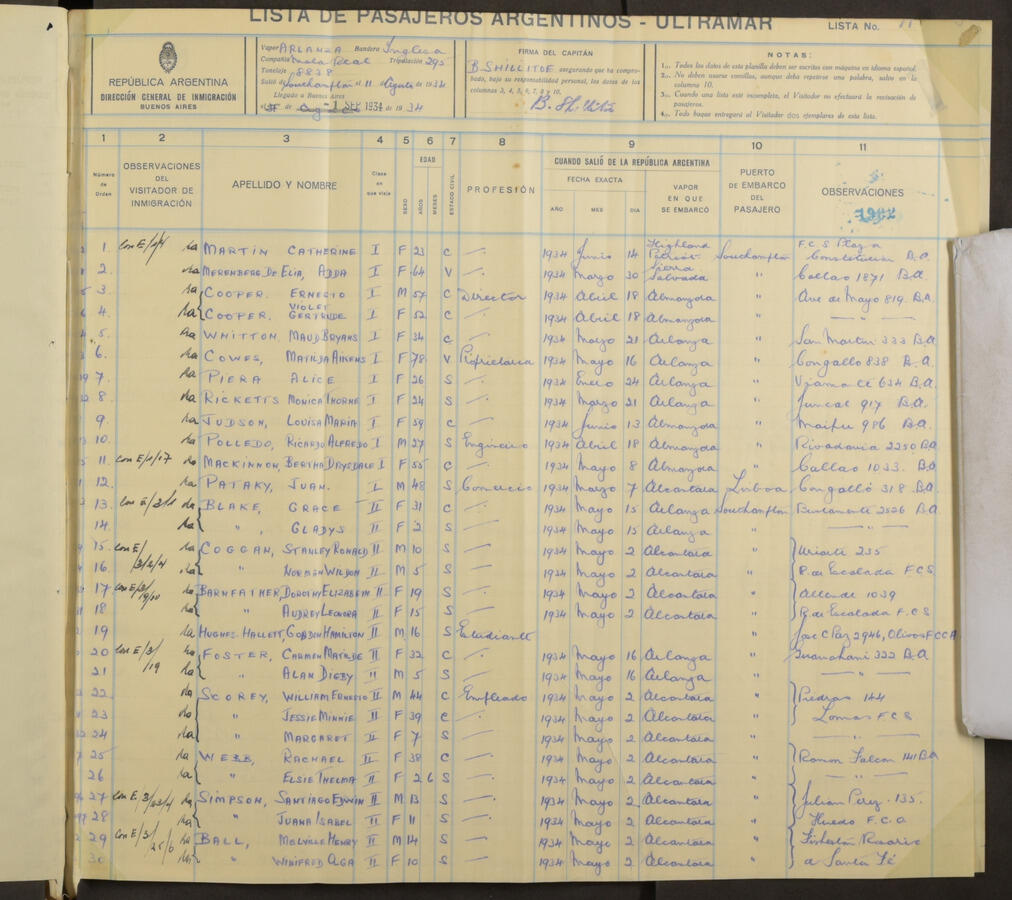 LISTA DE PASAJEROS ARGENTINOS - ULTRAMAR
LISTA No. 11
REPÚBLICA ARGENTINA
DIRECCIÓN GENERAL DE INMIGRACIÓN
BUENOS AIRES
Vapor ARLANZA Bandera Inglesa
Compañía Mala Real Tripulación 295
Tonelaje 8838
Salió de Southampton el 11 Agosto de 1934
Llegado a Buenos Aires
el de - 1 SEP 1934 de 1934
FIRMA DEL CAPITÁN
B SHILLITOE asegurando que ha comprobado, bajo su responsabilidad personal, los datos de las columnas 3, 4, 5, 6, 7, 8 y 10.
B. Shillitoe
NOTAS:
1.. Todos los datos de esta planilla deben ser escritos con máquina en idioma español.
2.. No deben usarse comillas, aunque deba repetirse una palabra, salvo en la columna 10.
3.. Cuando una lista esté incompleta, el Visitador no efectuará la revisación de pasajeros.
4.. Todo buque entregará al Visitador dos ejemplares de esta lista.
1 2 3 4 5 6 7 8 9 10 11
Número de Orden
OBSERVACIONES DEL VISITADOR DE INMIGRACIÓN
APELLIDO Y NOMBRE
Clase en que viaja
SEXO
EDAD
AÑOS
MESES
ESTADO CIVIL
PROFESIÓN
CUANDO SALIÓ DE LA REPÚBLICA ARGENTINA
FECHA EXACTA
AÑO MES DIA
VAPOR EN QUE SE EMBARCÓ
PUERTO DE EMBARCO DEL PASAJERO
OBSERVACIONES
1. MARTIN CATHERINE I F 23 C 1934 Junio 14 Highland Patriot Southampton F.C.S Plaza Constitucion B.A.
2. MERENBERG DE ELIA, ADDA I F 64 V 1934 Marzo 30 Sierra Salvada " Callao 1871 B.A.
3. COOPER. ERNESTO I M 57 C Director 1934 Abril 18 Almanzora " Ave de Mayo 819. B.A.
4. COOPER. VIOLET GERTRUDE I F 52 C 1934 Abril 18 Almanzora " " "
5. WHITTON MAUD BRYANS I F 34 C 1934 Marzo 21 Arlanza " San Martin 333 B.A
6. COWES, MATILDA AIKENS I F 78 V Propietaria 1934 Mayo 16 Arlanza " Cangallo 838 B.A.
7. PIERA ALICE I F 26 S 1934 Enero 24 Arlanza " Viamonte 634 B.A.
8. RICKETTS MONICA THORNE I F 24 S 1934 Marzo 21 Arlanza " Juncal 917 B.A.
9. JUDSON, LOUISA MARIA I F 59 C 1934 Junio 13 Almanzora " Maipu 986 B.A.
10. POLLEDO, RICARDO ALFREDO I M 27 S Engeniero 1934 Abril 18 Almanzora " Rivadavia 2250 B.A
11. MACKINNON, BERTHA DRYSDALE I F 55 C 1934 Mayo 8 Almanzora " Callao 1033. B.A
12. PATAKY, JUAN. I M 48 S Comercio 1934 Marzo 7 Alcantara Lisboa Cangallo 318 B.A.
13. BLAKE, GRACE II F 31 C 1934 Mayo 15 Arlanza Southampton Bustamente 2526 B.A
14. " GLADYS II F 2 S 1934 Mayo 15 Arlanza " " "
15. COGGAN, STANLEY RONALD II M 10 S 1934 Mayo 2 Alcantara " Uriarte 235
16. " NORMAN WILDON II M 5 S 1934 Mayo 2 Alcantara " R. de Escalada F.C.S
17 BARNFATHER, DOROTHY ELIZABETH II F 19 S 1934 Mayo 2 Alcantara " Allende 1039
18 " AUDREY LEONORA II F 15 S 1934 Mayo 2 Alcantara " R. de Escalada F.C.S
19 HUGHES-HALLETT, GORDON HAMILTON II M 16 S Estudiante " Jose C Paz 2946, Olivos F.C.C.A
20 FOSTER, CARMEN MATILDE II F 32 C 1934 Mayo 16 Arlanza " Guanahani 322 B.A
21 " ALAN DIGBY II M 5 S 1934 Mayo 16 Arlanza " " "
22 SCOREY, WILLIAM ERNESTO II M 44 C Empleado 1934 Mayo 2 Alcantara " Piedras 144
23 " JESSIE MINNIE II F 39 C 1934 Mayo 2 Alcantara " Lomas F.C.S
24 " MARGARET II F 7 S 1934 Mayo 2 Alcantara " " "
25 WEBB, RACHAEL II F 38 C 1934 Mayo 2 Alcantara " Ramon Falcon 141 B.A
26 " ELSIE THELMA II F 2 6 S 1934 Mayo 2 Alcantara " " "
27 SIMPSON, SANTIAGO EDWIN II M 13 S 1934 Mayo 2 Alcantara " Julian Perez. 135.
28 " JUANA ISABEL II F 11 S 1934 Mayo 2 Alcantara " Haedo F.C.O
29 BALL, MELVILLE HENRY II M 14 S 1934 Mayo 2 Alcantara " Fisherton Rosario
30 " WINIFRED OLGA II F 10 S 1934 Mayo 2 Alcantara " a Santa Fé